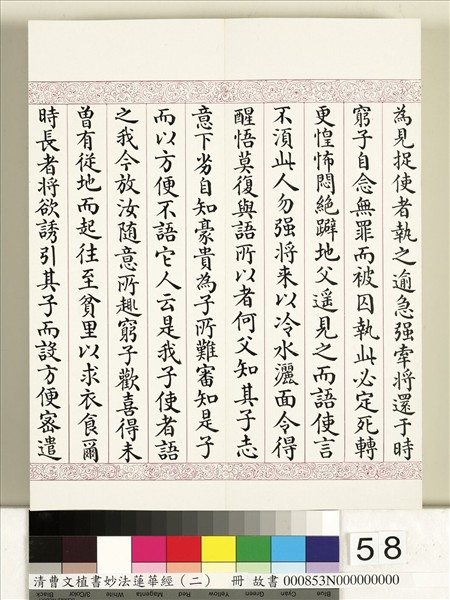 為見捉使者執之逾急强牽將還于時
窮子自念無罪而被囚執此必定死轉
更惶怖悶絶躃地父遥見之而語使言
不湏此人勿强將来以冷水灑面令得
醒悟莫復與語所以者何父知其子志
意下劣自知豪貴為子所難審知是子
而以方便不語它人云是我子使者語
之我今放汝随意所趣窮子歡喜得未
曽有從地而起往至貧里以求衣食爾
時長者将欲誘引其子而設方便宻遣
58
清曹文植書妙法蓮華經（二） 冊 故書 000853N000000000
Black 3/Color White Magenta Red Yellow Green Cyan Blue